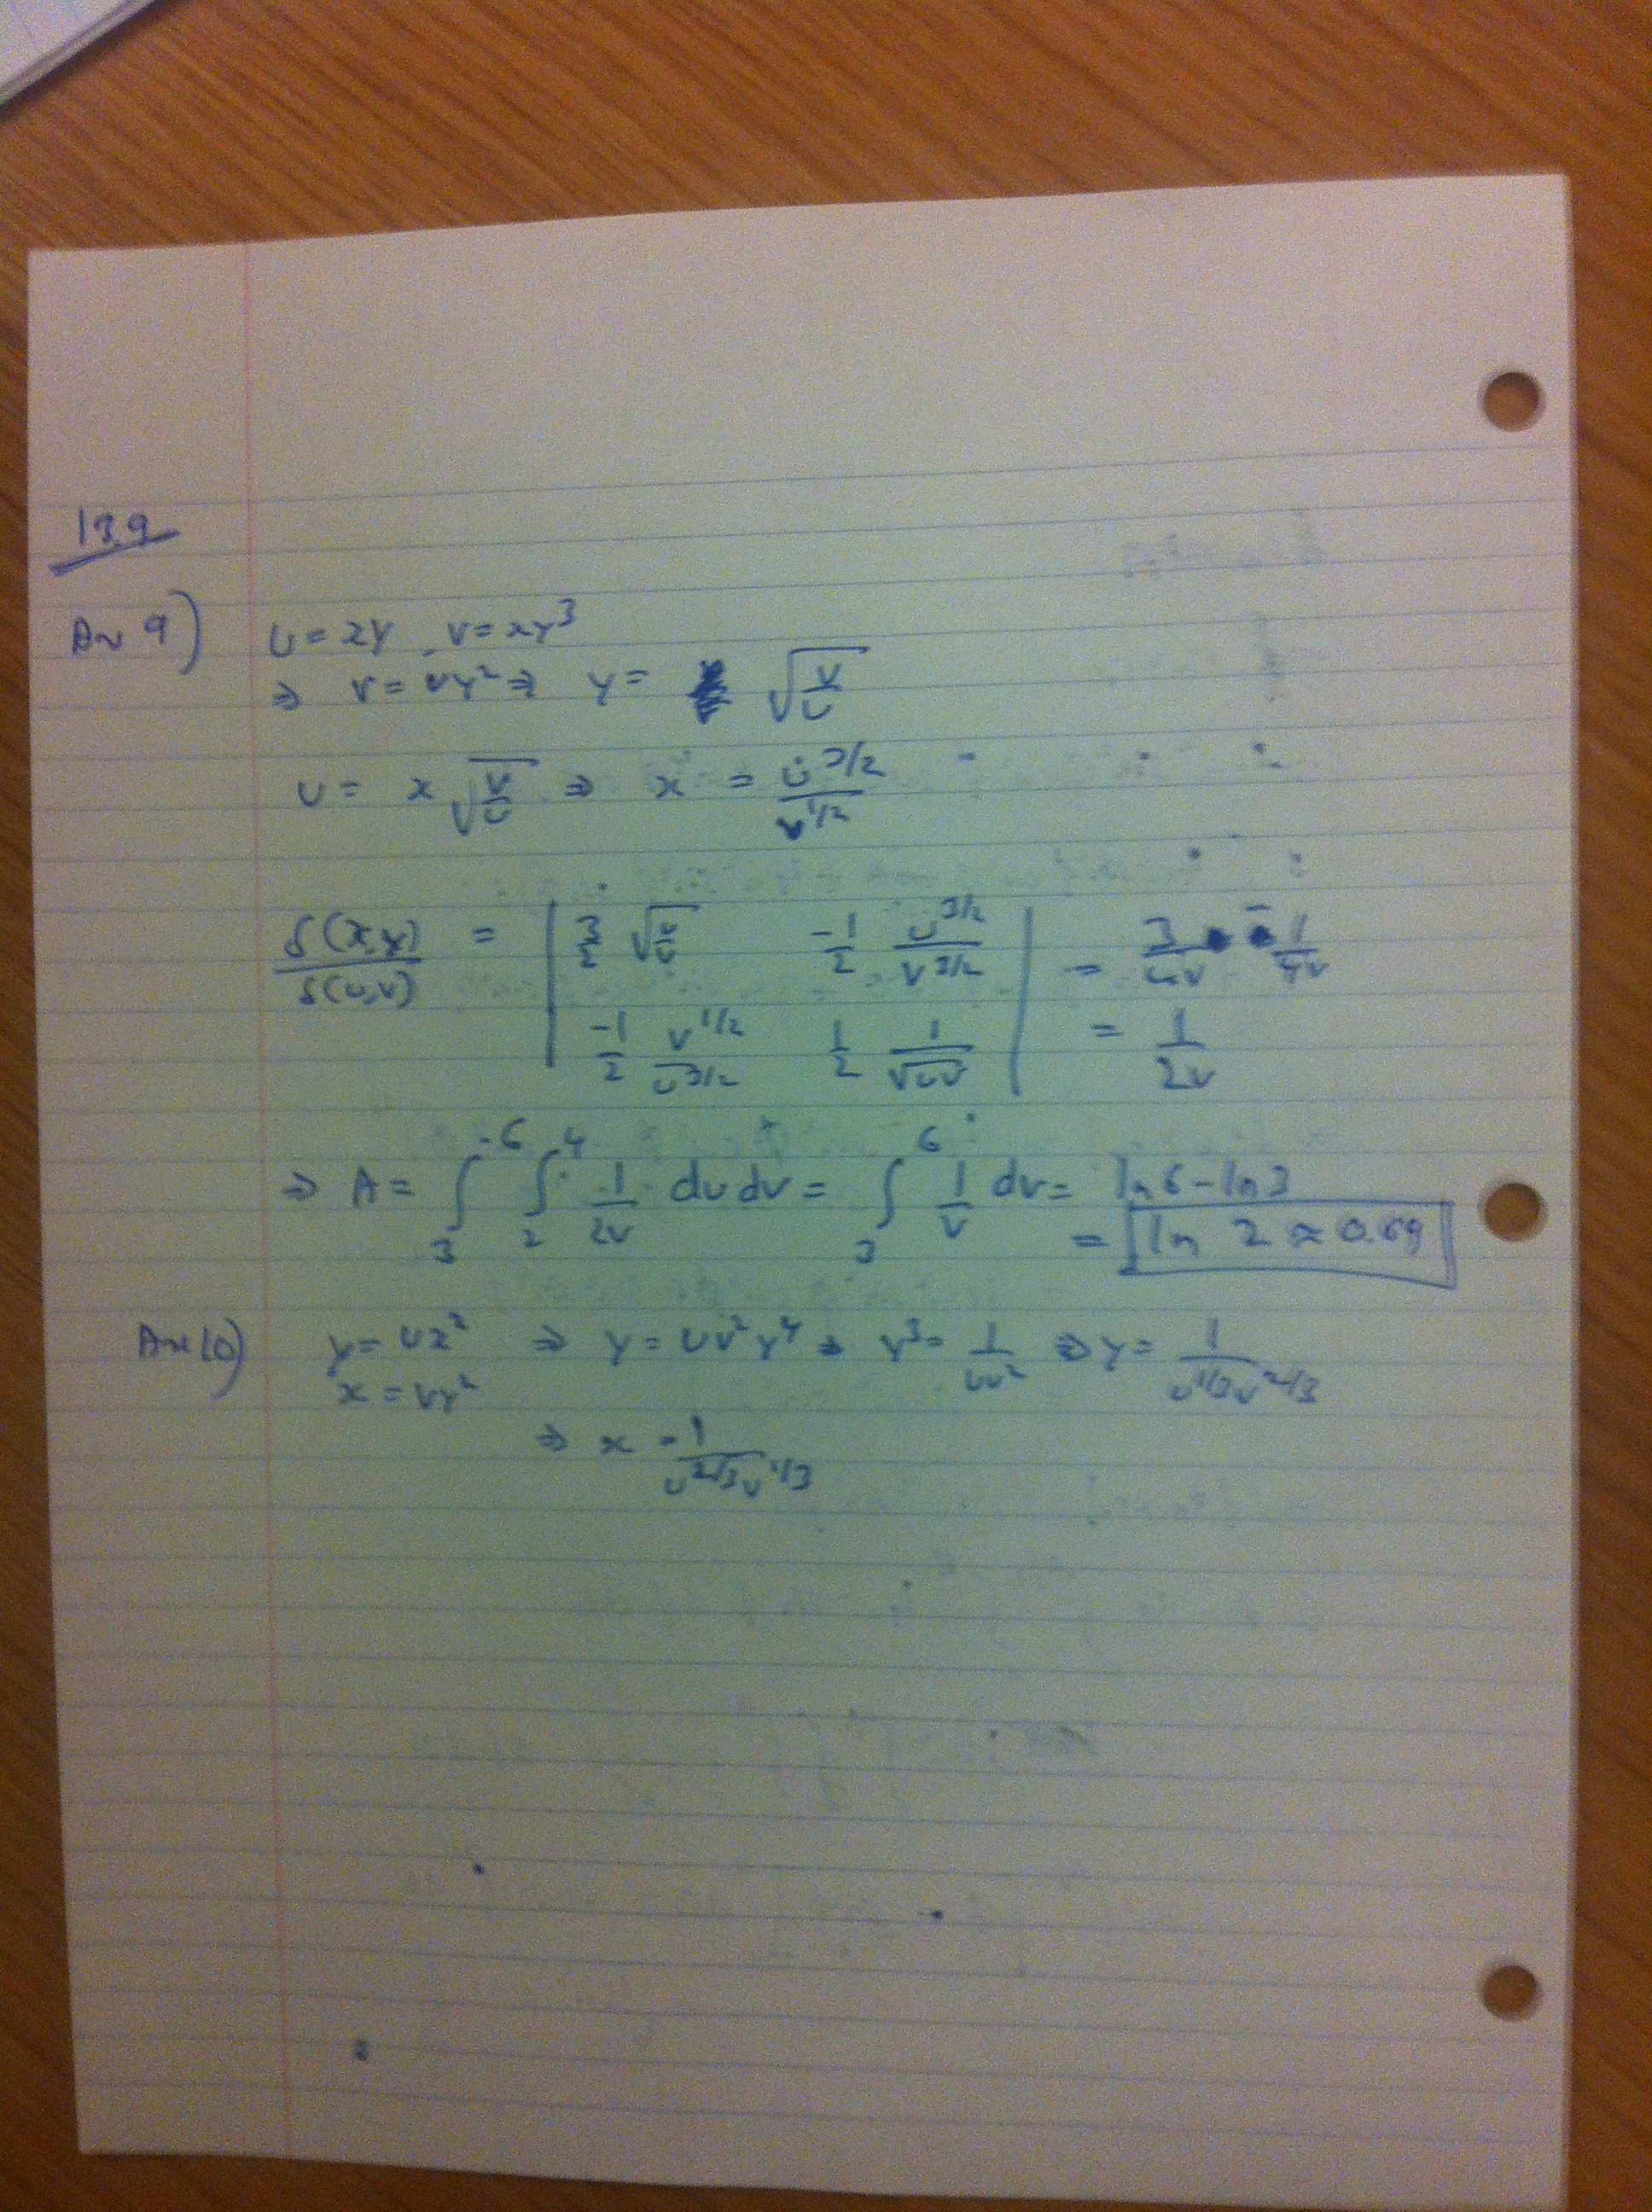 13.9
An 9) u = xy, v = xy³
⇒ v = uy² ⇒ y = √(v/u)
u = x √(v/u) ⇒ x = u^3/2 / v^1/2
δ(x,y)/δ(u,v) = | 3/2 √(u/v) -1/2 u^3/2 / v^3/2 | = 3/4v - 1/4v
| -1/2 v^1/2 / u^3/2 1/2 1/√uv | = 1/2v
⇒ A = ∫₃⁶ ∫₂⁴ 1/2v du dv = ∫₃⁶ 1/v dv = ln 6 - ln 3
= ln 2 ≈ 0.69
An 10) y = ux² ⇒ y = uv²y⁴ ⇒ y³ = 1/uv² ⇒ y = 1/u^1/3 v^2/3
x = vy²
⇒ x = 1/u^2/3 v^1/3